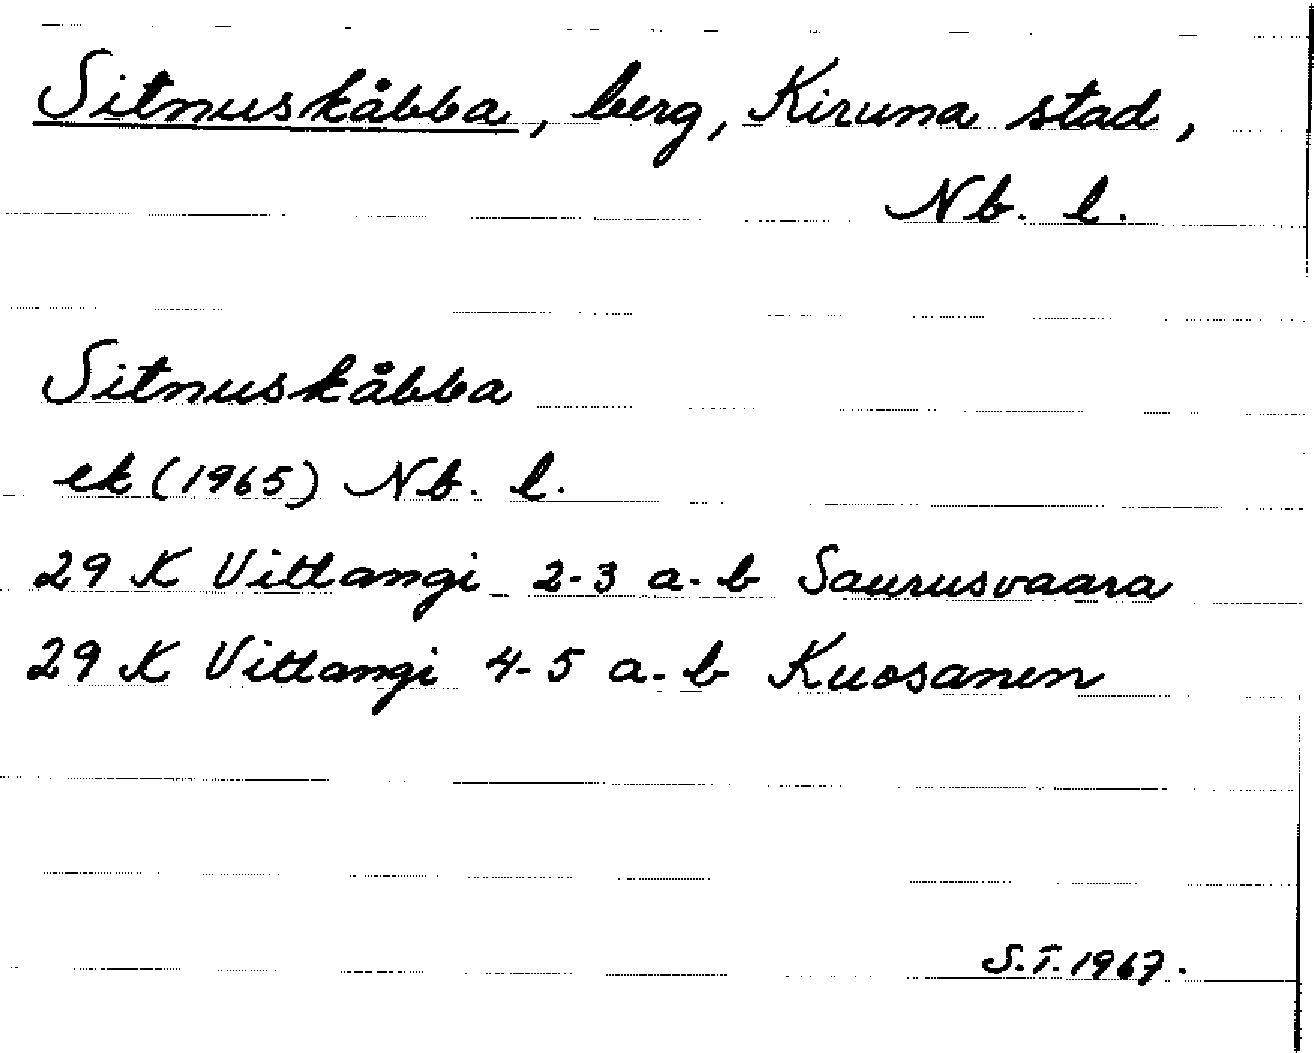 Sitnuskåbba, berg, Kiruna stad,
Nb. l.
Sitnuskåbba
ek (1965) Nb. l.
29 K Vittangi 2-3 a-b Saurusvaara
29 K Vittangi 4-5 a-b Kuosanen
S.T. 1967.